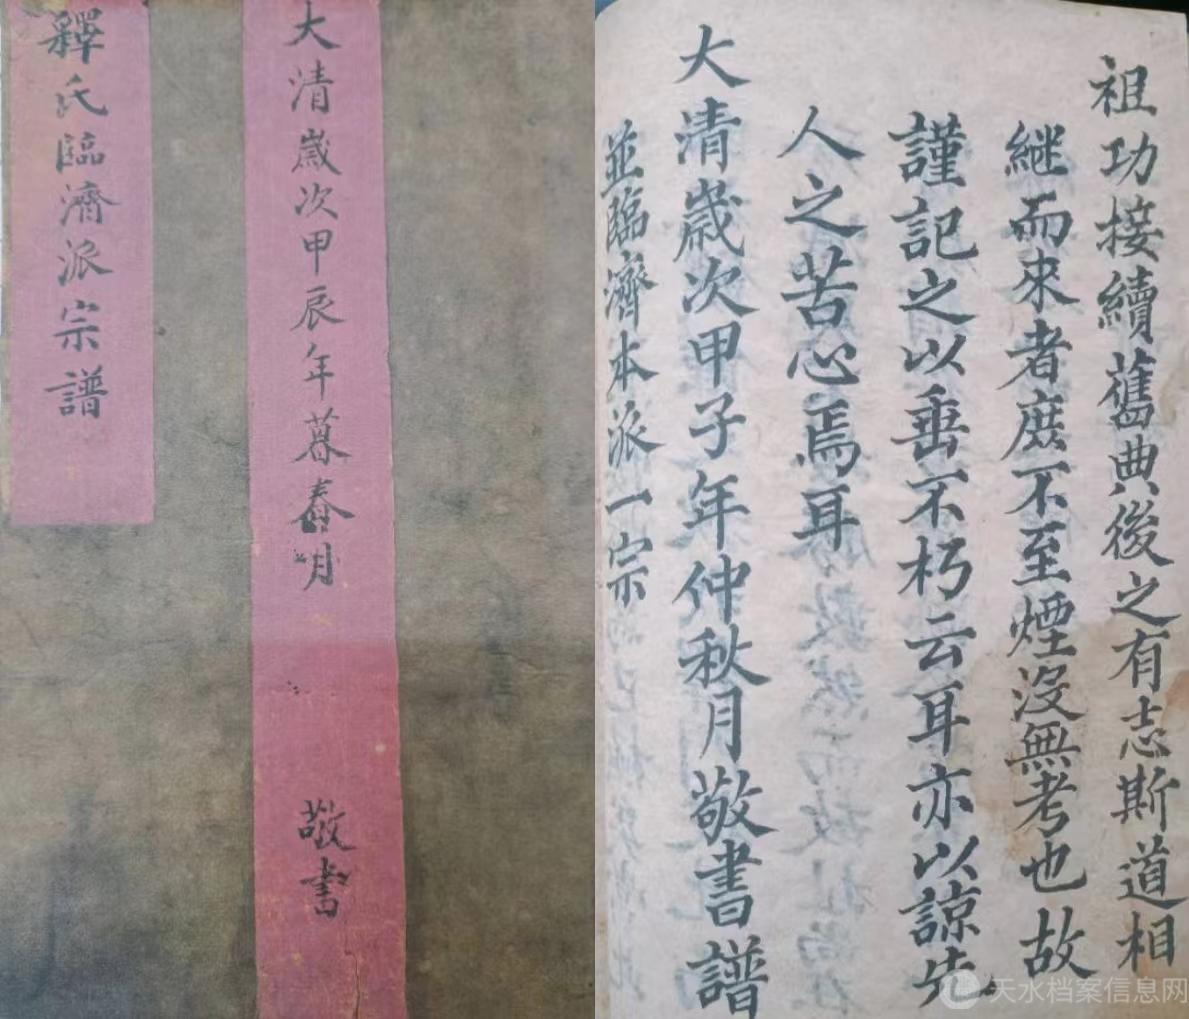 釋氏臨濟派宗譜
大清歲次甲辰年暮春月
敬書
祖功接續舊典後之有志斯道相
継而來者庶不至煙沒無考也故
謹記之以垂不朽云耳亦以諒先
人之苦心焉耳
大清歲次甲子年仲秋月敬書譜
並臨濟本派一宗
天水档案信息网